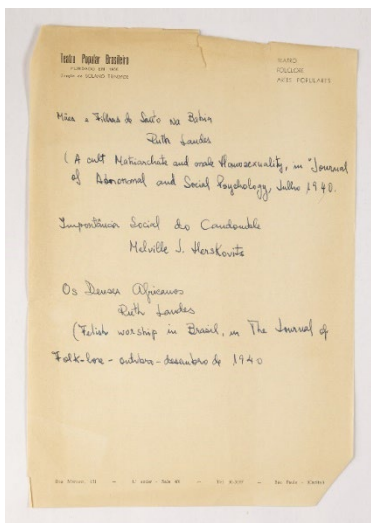 Teatro Popular Brasileiro
Direção de SOLANO TRINDADE
TEATRO
FOLCLORE
ARTES POPULARES
Mães e Filhas do Santo na Bahia
Ruth Landes
(A cult Matriarchate and male Homosexuality, in "Journal
of Abnormal and Social Psychology, Julho 1940.
Importância Social do Candomblé
Melville J. Herskovits
Os Deuses Africanos
Ruth Landes
(Fetish worship in Brasil, in The Journal of
Folk-lore - outubro - desembro de 1940
São Paulo